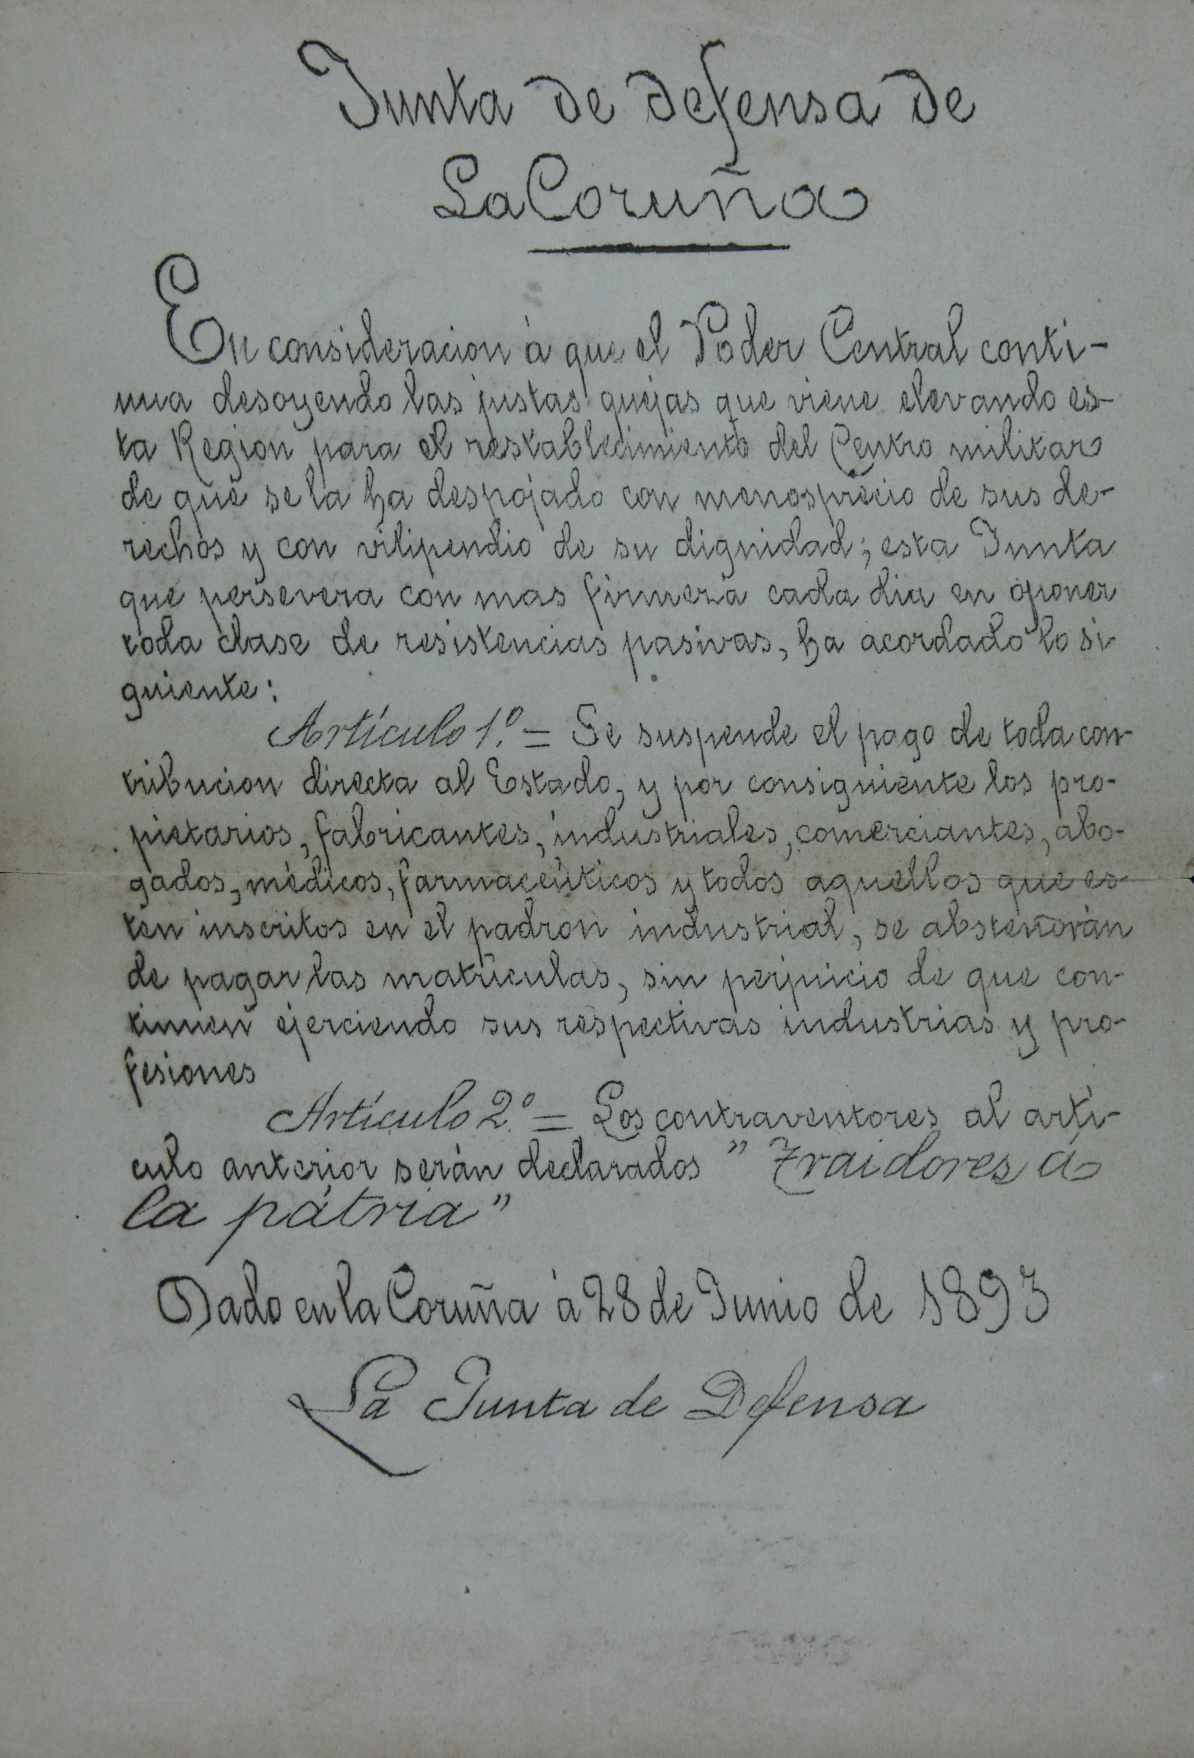 Junta de defensa de
La Coruña
En consideracion á que el Poder Central conti-
nua desoyendo las justas quejas que viene elevando es-
ta Region para el restablecimiento del Centro militar
de que se la ha despojado con menosprecio de sus de-
rechos y con vilipendio de su dignidad; esta Junta
que persevera con mas firmeza cada dia en oponer
toda clase de resistencias pasivas, ha acordado lo si
guiente:
Artículo 1.º = Se suspende el pago de toda con-
tribucion directa al Estado, y por consiguiente los pro-
pietarios, fabricantes, industriales, comerciantes, abo-
gados, médicos, farmacéuticos y todos aquellos que es-
ten inscritos en el padron industrial, se abstendrán
de pagar las matrículas, sin perjuicio de que con-
tinuen ejerciendo sus respectivas industrias y pro-
fesiones
Artículo 2.º = Los contraventores al artí-
culo anterior serán declarados "Traidores á
la pátria"
Dado en la Coruña á 28 de Junio de 1893
La Junta de Defensa